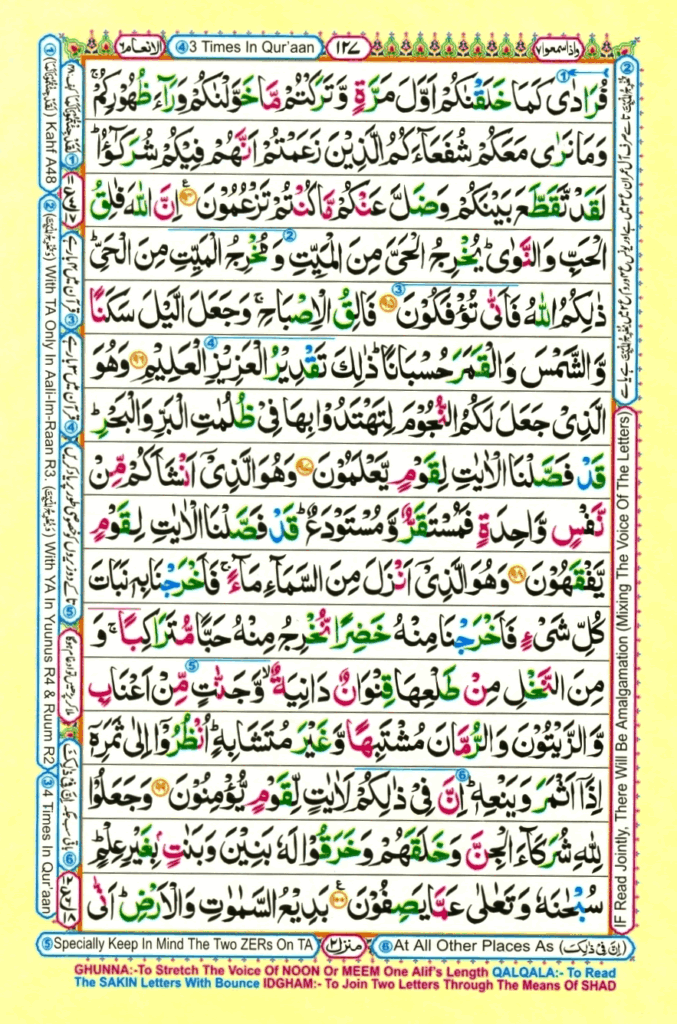 الانعام٦
④3 Times In Qur'aan
١٢٧
واذاسمعوا٧
فُرَادٰى كَمَا خَلَقْنٰكُمْ اَوَّلَ مَرَّةٍ وَّتَرَكْتُمْ مَّا خَوَّلْنٰكُمْ وَرَآءَ ظُهُوْرِكُمْ ۚ
وَمَا نَرٰى مَعَكُمْ شُفَعَآءَكُمُ الَّذِيْنَ زَعَمْتُمْ اَنَّهُمْ فِيْكُمْ شُرَكٰٓؤُا ؕ
لَقَدْ تَّقَطَّعَ بَيْنَكُمْ وَضَلَّ عَنْكُمْ مَّا كُنْتُمْ تَزْعُمُوْنَ ۝٩٤ اِنَّ اللّٰهَ فَالِقُ
الْحَبِّ وَالنَّوٰى ؕ يُخْرِجُ الْحَيَّ مِنَ الْمَيِّتِ وَمُخْرِجُ الْمَيِّتِ مِنَ الْحَيِّ ؕ
ذٰلِكُمُ اللّٰهُ فَاَنّٰى تُؤْفَكُوْنَ ۝٩٥ فَالِقُ الْاِصْبَاحِ ۚ وَجَعَلَ الَّيْلَ سَكَنًا
وَّالشَّمْسَ وَالْقَمَرَ حُسْبَانًا ؕ ذٰلِكَ تَقْدِيْرُ الْعَزِيْزِ الْعَلِيْمِ ۝٩٦ وَهُوَ
الَّذِيْ جَعَلَ لَكُمُ النُّجُوْمَ لِتَهْتَدُوْا بِهَا فِيْ ظُلُمٰتِ الْبَرِّ وَالْبَحْرِ ؕ
قَدْ فَصَّلْنَا الْاٰيٰتِ لِقَوْمٍ يَّعْلَمُوْنَ ۝٩٧ وَهُوَ الَّذِيْٓ اَنْشَاَكُمْ مِّنْ
نَّفْسٍ وَّاحِدَةٍ فَمُسْتَقَرٌّ وَّمُسْتَوْدَعٌ ؕ قَدْ فَصَّلْنَا الْاٰيٰتِ لِقَوْمٍ
يَّفْقَهُوْنَ ۝٩٨ وَهُوَ الَّذِيْٓ اَنْزَلَ مِنَ السَّمَآءِ مَآءً ۚ فَاَخْرَجْنَا بِهٖ نَبَاتَ
كُلِّ شَيْءٍ فَاَخْرَجْنَا مِنْهُ خَضِرًا نُّخْرِجُ مِنْهُ حَبًّا مُّتَرَاكِبًا ۚ وَ
مِنَ النَّخْلِ مِنْ طَلْعِهَا قِنْوَانٌ دَانِيَةٌ ۙ وَّجَنّٰتٍ مِّنْ اَعْنَابٍ
وَّالزَّيْتُوْنَ وَالرُّمَّانَ مُشْتَبِهًا وَّغَيْرَ مُتَشَابِهٍ ؕ اُنْظُرُوْٓا اِلٰى ثَمَرِهٖٓ
اِذَآ اَثْمَرَ وَيَنْعِهٖ ؕ اِنَّ فِيْ ذٰلِكُمْ لَاٰيٰتٍ لِّقَوْمٍ يُّؤْمِنُوْنَ ۝٩٩ وَجَعَلُوْا
لِلّٰهِ شُرَكَآءَ الْجِنَّ وَخَلَقَهُمْ وَخَرَقُوْا لَهٗ بَنِيْنَ وَبَنٰتٍۭ بِغَيْرِ عِلْمٍ ؕ
سُبْحٰنَهٗ وَتَعٰلٰى عَمَّا يَصِفُوْنَ ۝١٠٠ بَدِيْعُ السَّمٰوٰتِ وَالْاَرْضِ ؕ اَنّٰى
IF Read Jointly, There Will Be Amalgamation (Mixing The Voice Of The Letters)
Kahf A48 ② With TA Only In Aali-Im-Raan R3. With YA In Yuunus R4 & Ruum R2 ③ 4 Times In Qur'aan
⑤Specially Keep In Mind The Two ZERs On TA
منزل٢
⑥At All Other Places As (اِنَّ فِيْ ذٰلِكَ)
GHUNNA:-To Stretch The Voice Of NOON Or MEEM One Alif's Length QALQALA:- To Read
The SAKIN Letters With Bounce IDGHAM:- To Join Two Letters Through The Means Of SHAD